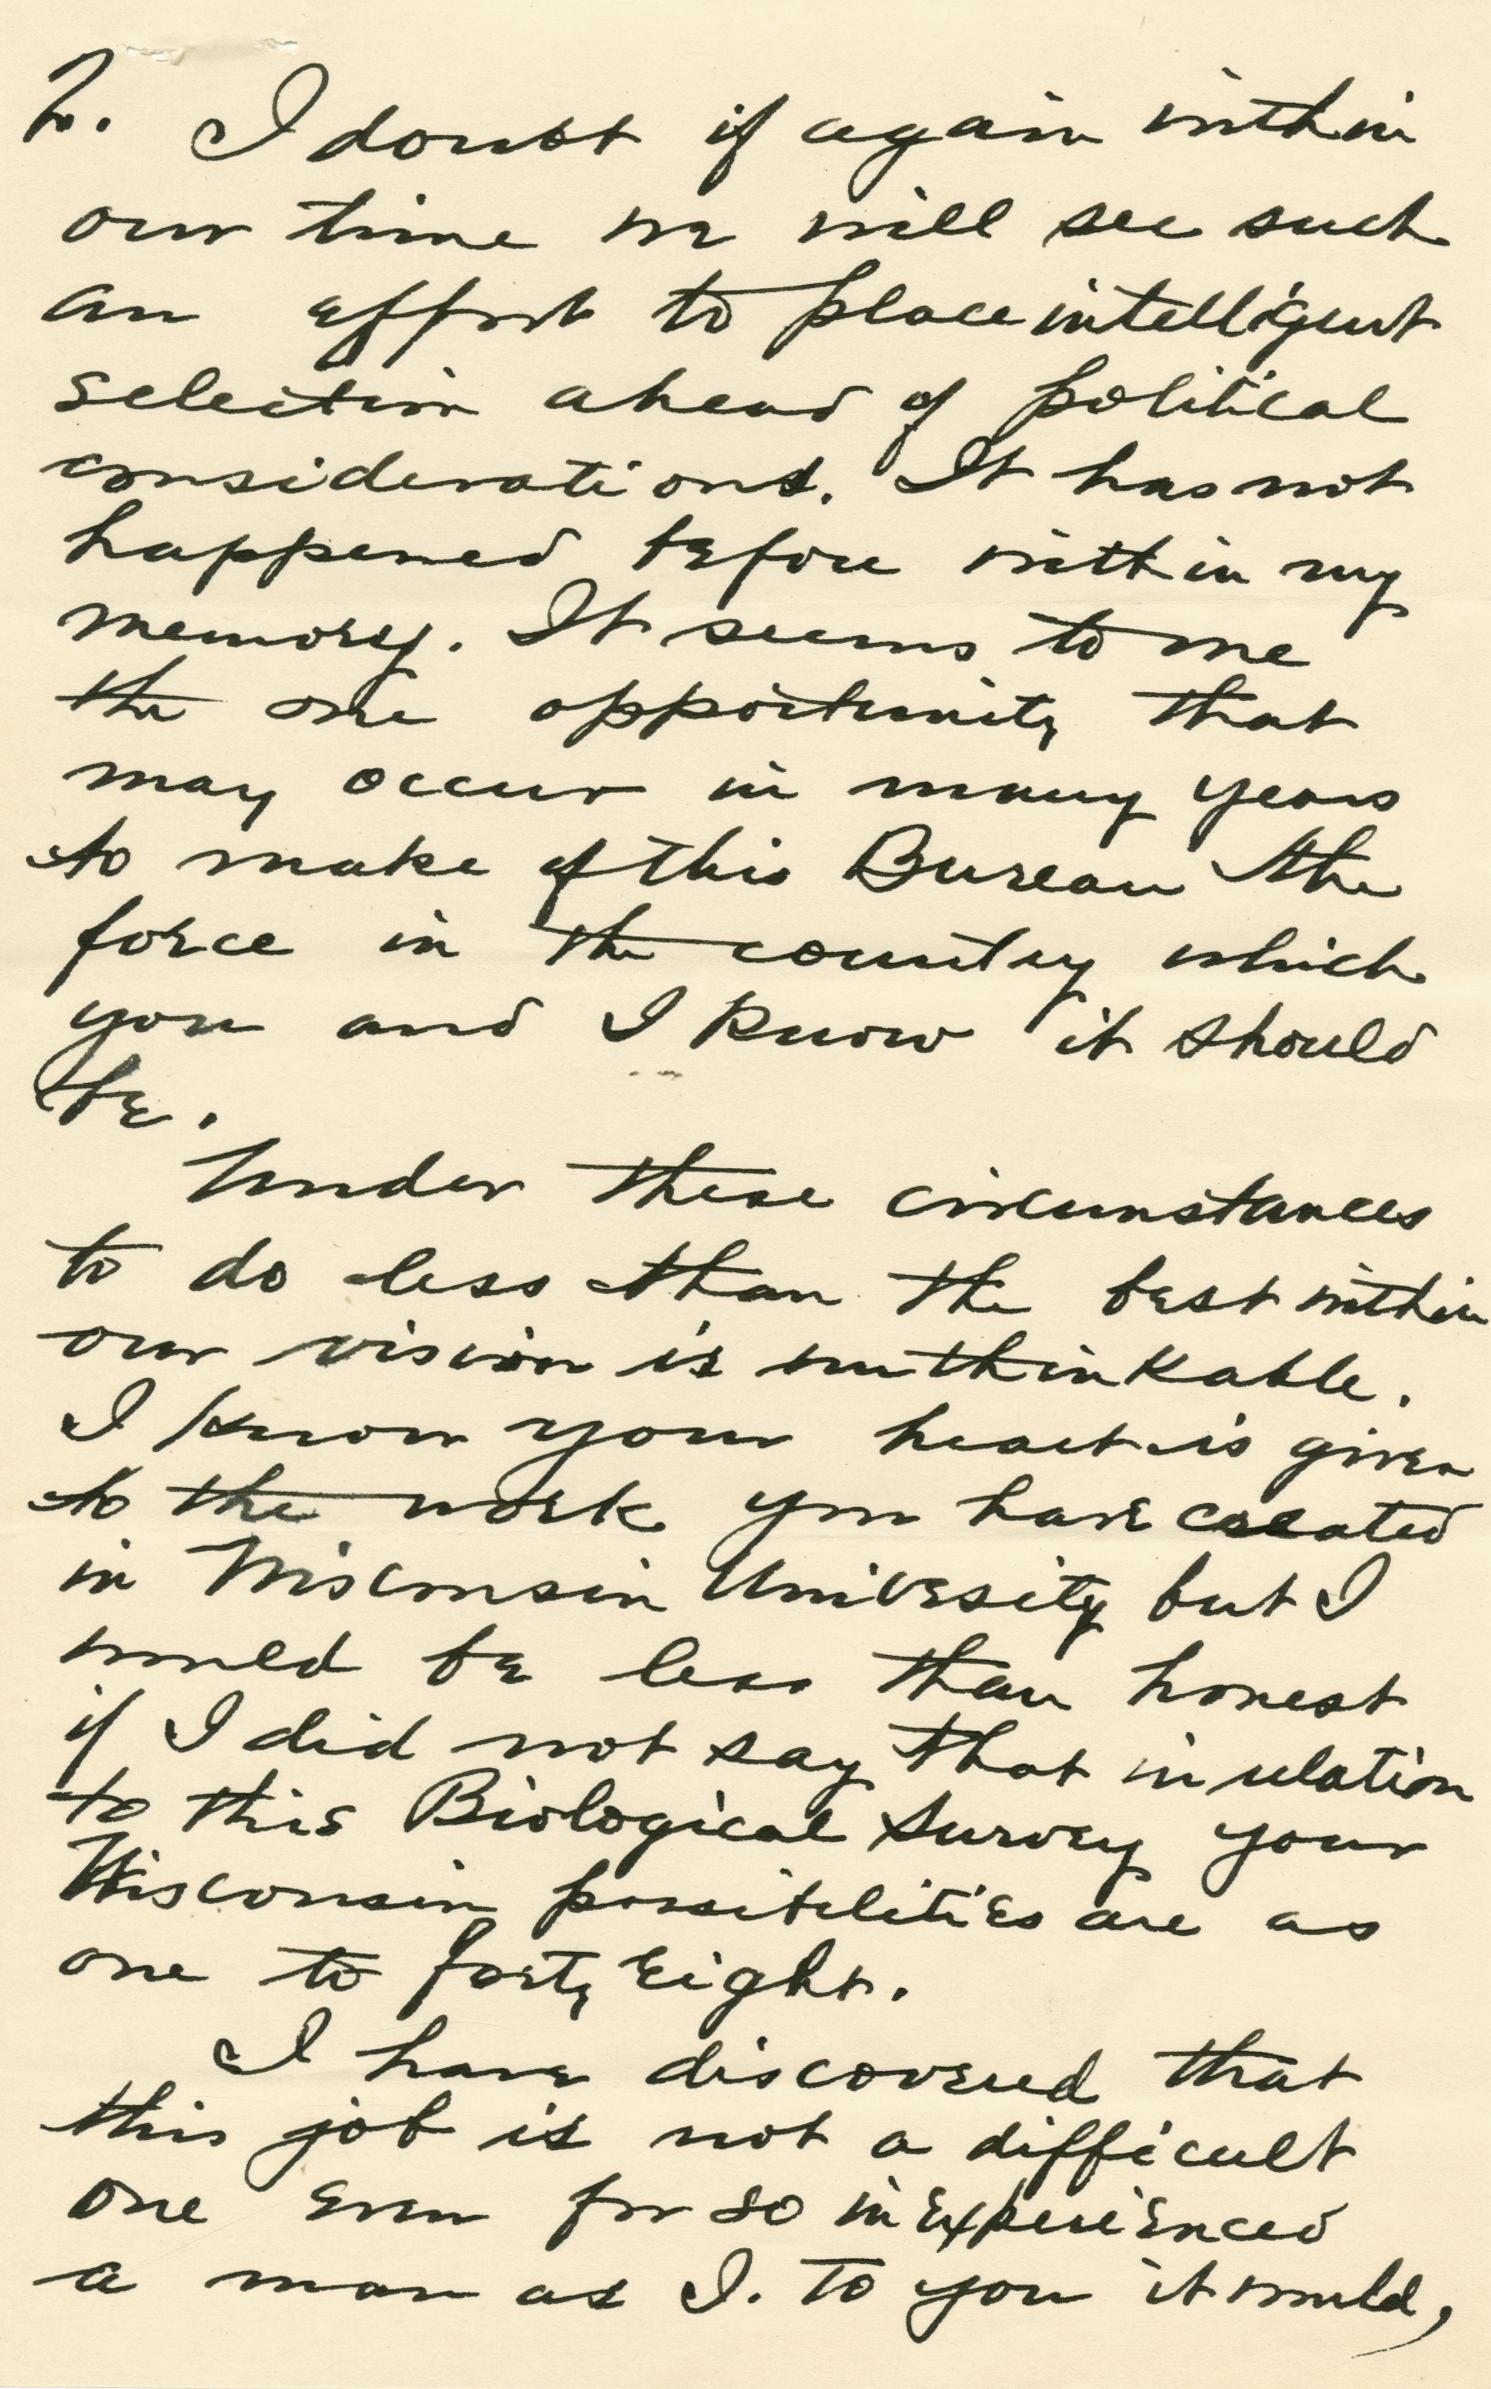 2. I doubt if again within
our time we will see such
an effort to place intelligent
selection ahead of political
considerations. It has not
happened before within my
memory. It seems to me
the one opportunity that
may occur in many years
to make of this Bureau the
force in the country which
you and I know it should
be.
Under these circumstances
to do less than the best within
our vision is unthinkable.
I know your heart is given
to the work you have created
in Wisconsin University but I
would be less than honest
if I did not say that in relation
to this Biological Survey your
Wisconsin possibilities are as
one to forty eight.
I have discovered that
this job is not a difficult
one even for so inexperienced
a man as I. To you it would,